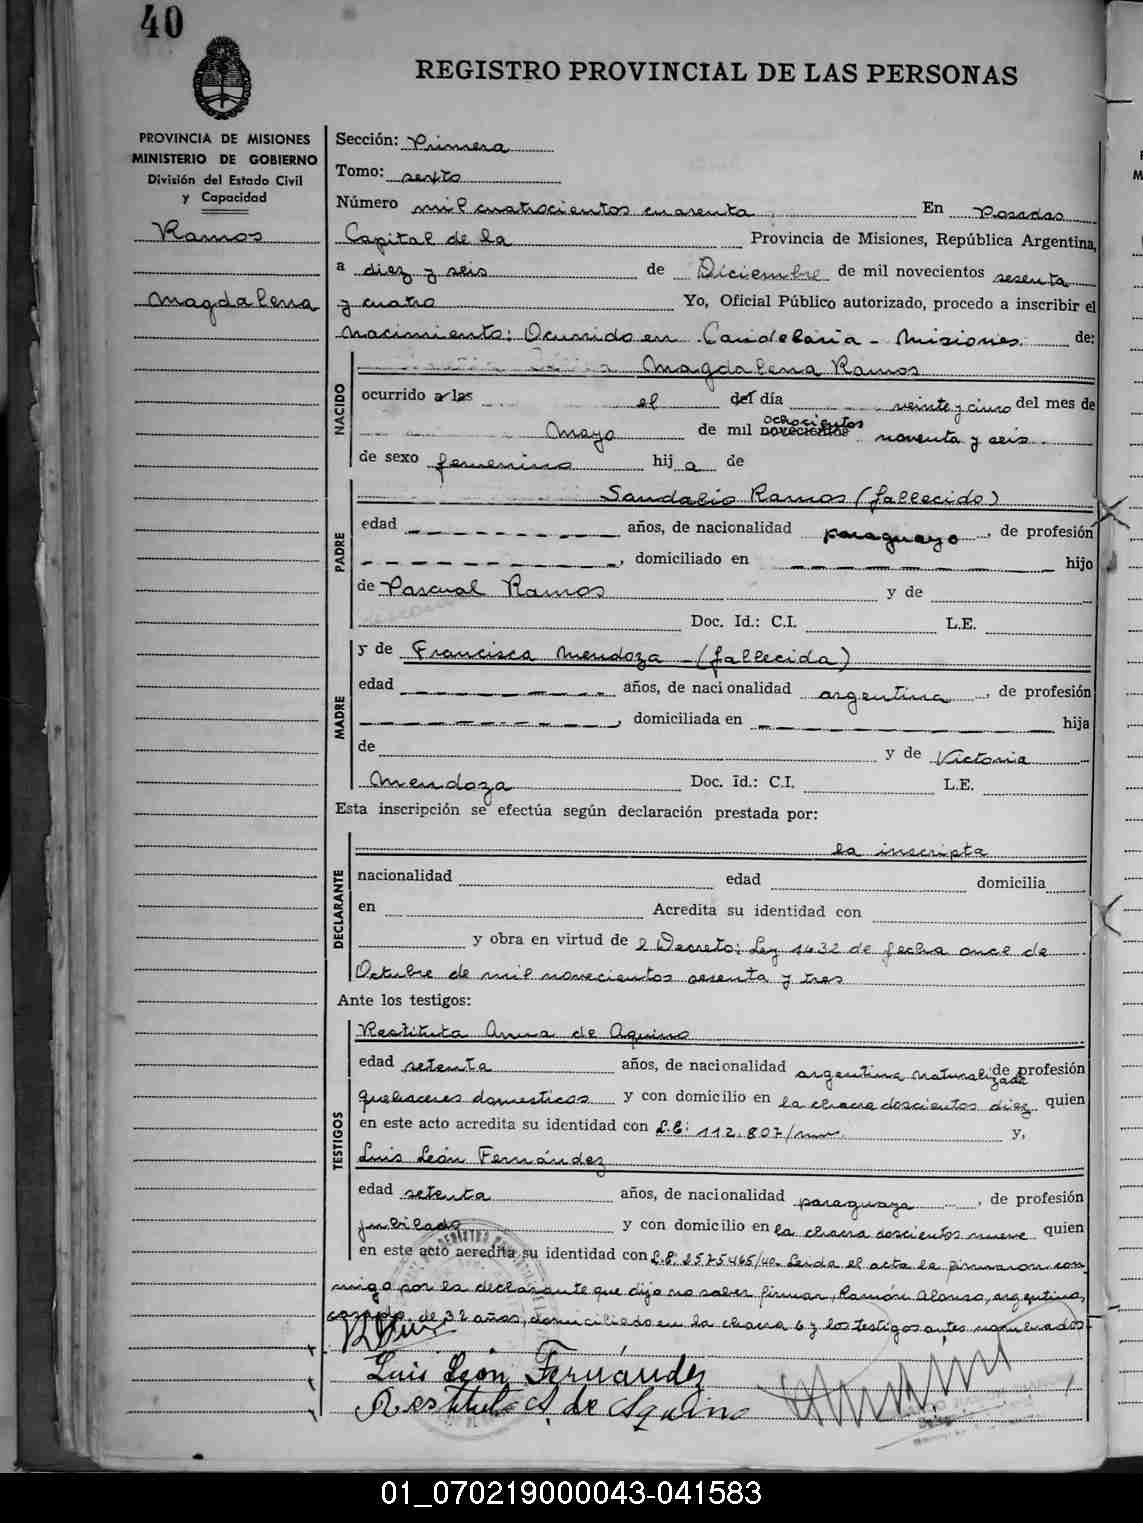 40
REGISTRO PROVINCIAL DE LAS PERSONAS
PROVINCIA DE MISIONES
MINISTERIO DE GOBIERNO
División del Estado Civil
y Capacidad
Ramos
Magdalena
Sección: Primera
Tomo: sexto
Número mil cuatrocientos cuarenta. En Posadas
Capital de la Provincia de Misiones, República Argentina,
a diez y seis de Diciembre de mil novecientos sesenta
y cuatro Yo, Oficial Público autorizado, procedo a inscribir el
nacimiento: Ocurrido en Candelaria - Misiones. de:
NACIDO
Magdalena Ramos
ocurrido a las el del día veinte y cinco del mes de
Mayo de mil novecientos ochocientos noventa y seis.
de sexo femenino hij a de
PADRE
Sandalio Ramos (fallecido)
edad años, de nacionalidad paraguayo, de profesión
, domiciliado en hijo
de Pascual Ramos y de
Doc. Id.: C.I. L.E.
MADRE
y de Francisca Mendoza - (fallecida)
edad años, de nacionalidad argentina, de profesión
, domiciliada en hija
de y de Victoria
Mendoza Doc. Id.: C.I. L.E.
Esta inscripción se efectúa según declaración prestada por:
DECLARANTE
la inscripta
nacionalidad edad domicilia
en Acredita su identidad con
y obra en virtud de l Decreto: Ley 1432 de fecha once de
Octubre de mil novecientos sesenta y tres
Ante los testigos:
TESTIGOS
Restituta de Aquino
edad setenta años, de nacionalidad argentina naturalizada de profesión
quehaceres domesticos y con domicilio en la chacra doscientos diez quien
en este acto acredita su identidad con L.C: 112.807/ y,
Luis León Fernández
edad setenta años, de nacionalidad paraguaya, de profesión
jubilado y con domicilio en la chacra doscientos nueve quien
en este acto acredita su identidad con Leida el acta la firmaron con
migo por la declarante que dijo no saber firmar, Ramón Alonso, argentino,
casado, de 32 años, domiciliado en la chacra 6 y los testigos antes nombrados
Luis León Fernández
Restituta A. de Aquino
01_070219000043-041583